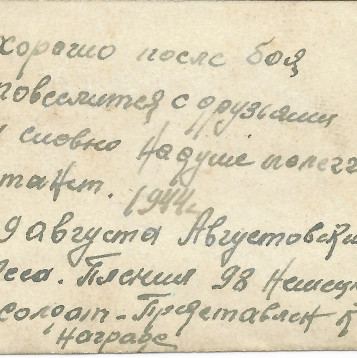 хорошо после боя
повселится с друзьями
и словно надуше полегч
танет.
1944г
9 августа Августовски
леса. Пленил 98 Немец
солдат - Представлен к
награде